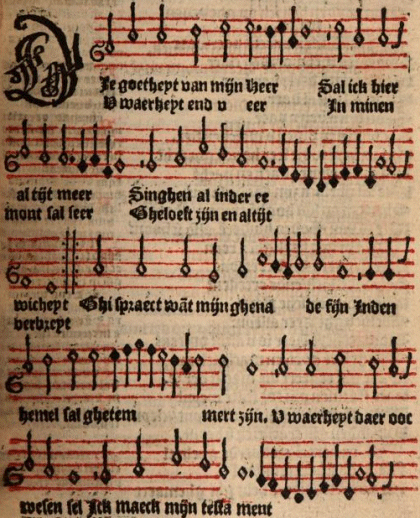 DJe goetheyt van mijn Heer Sal ick hier
V waerheyt end v eer In minen
al tijt meer Singhen al inder ee
mont sal seer Gheloeft zijn en altijt
wicheyt Ghi spraect wāt mijn ghena de sijn Inden
verbreyt
hemel sal ghetem mert zijn. V waerheyt daer ooc
wesen sel Jck maeck mijn testa ment